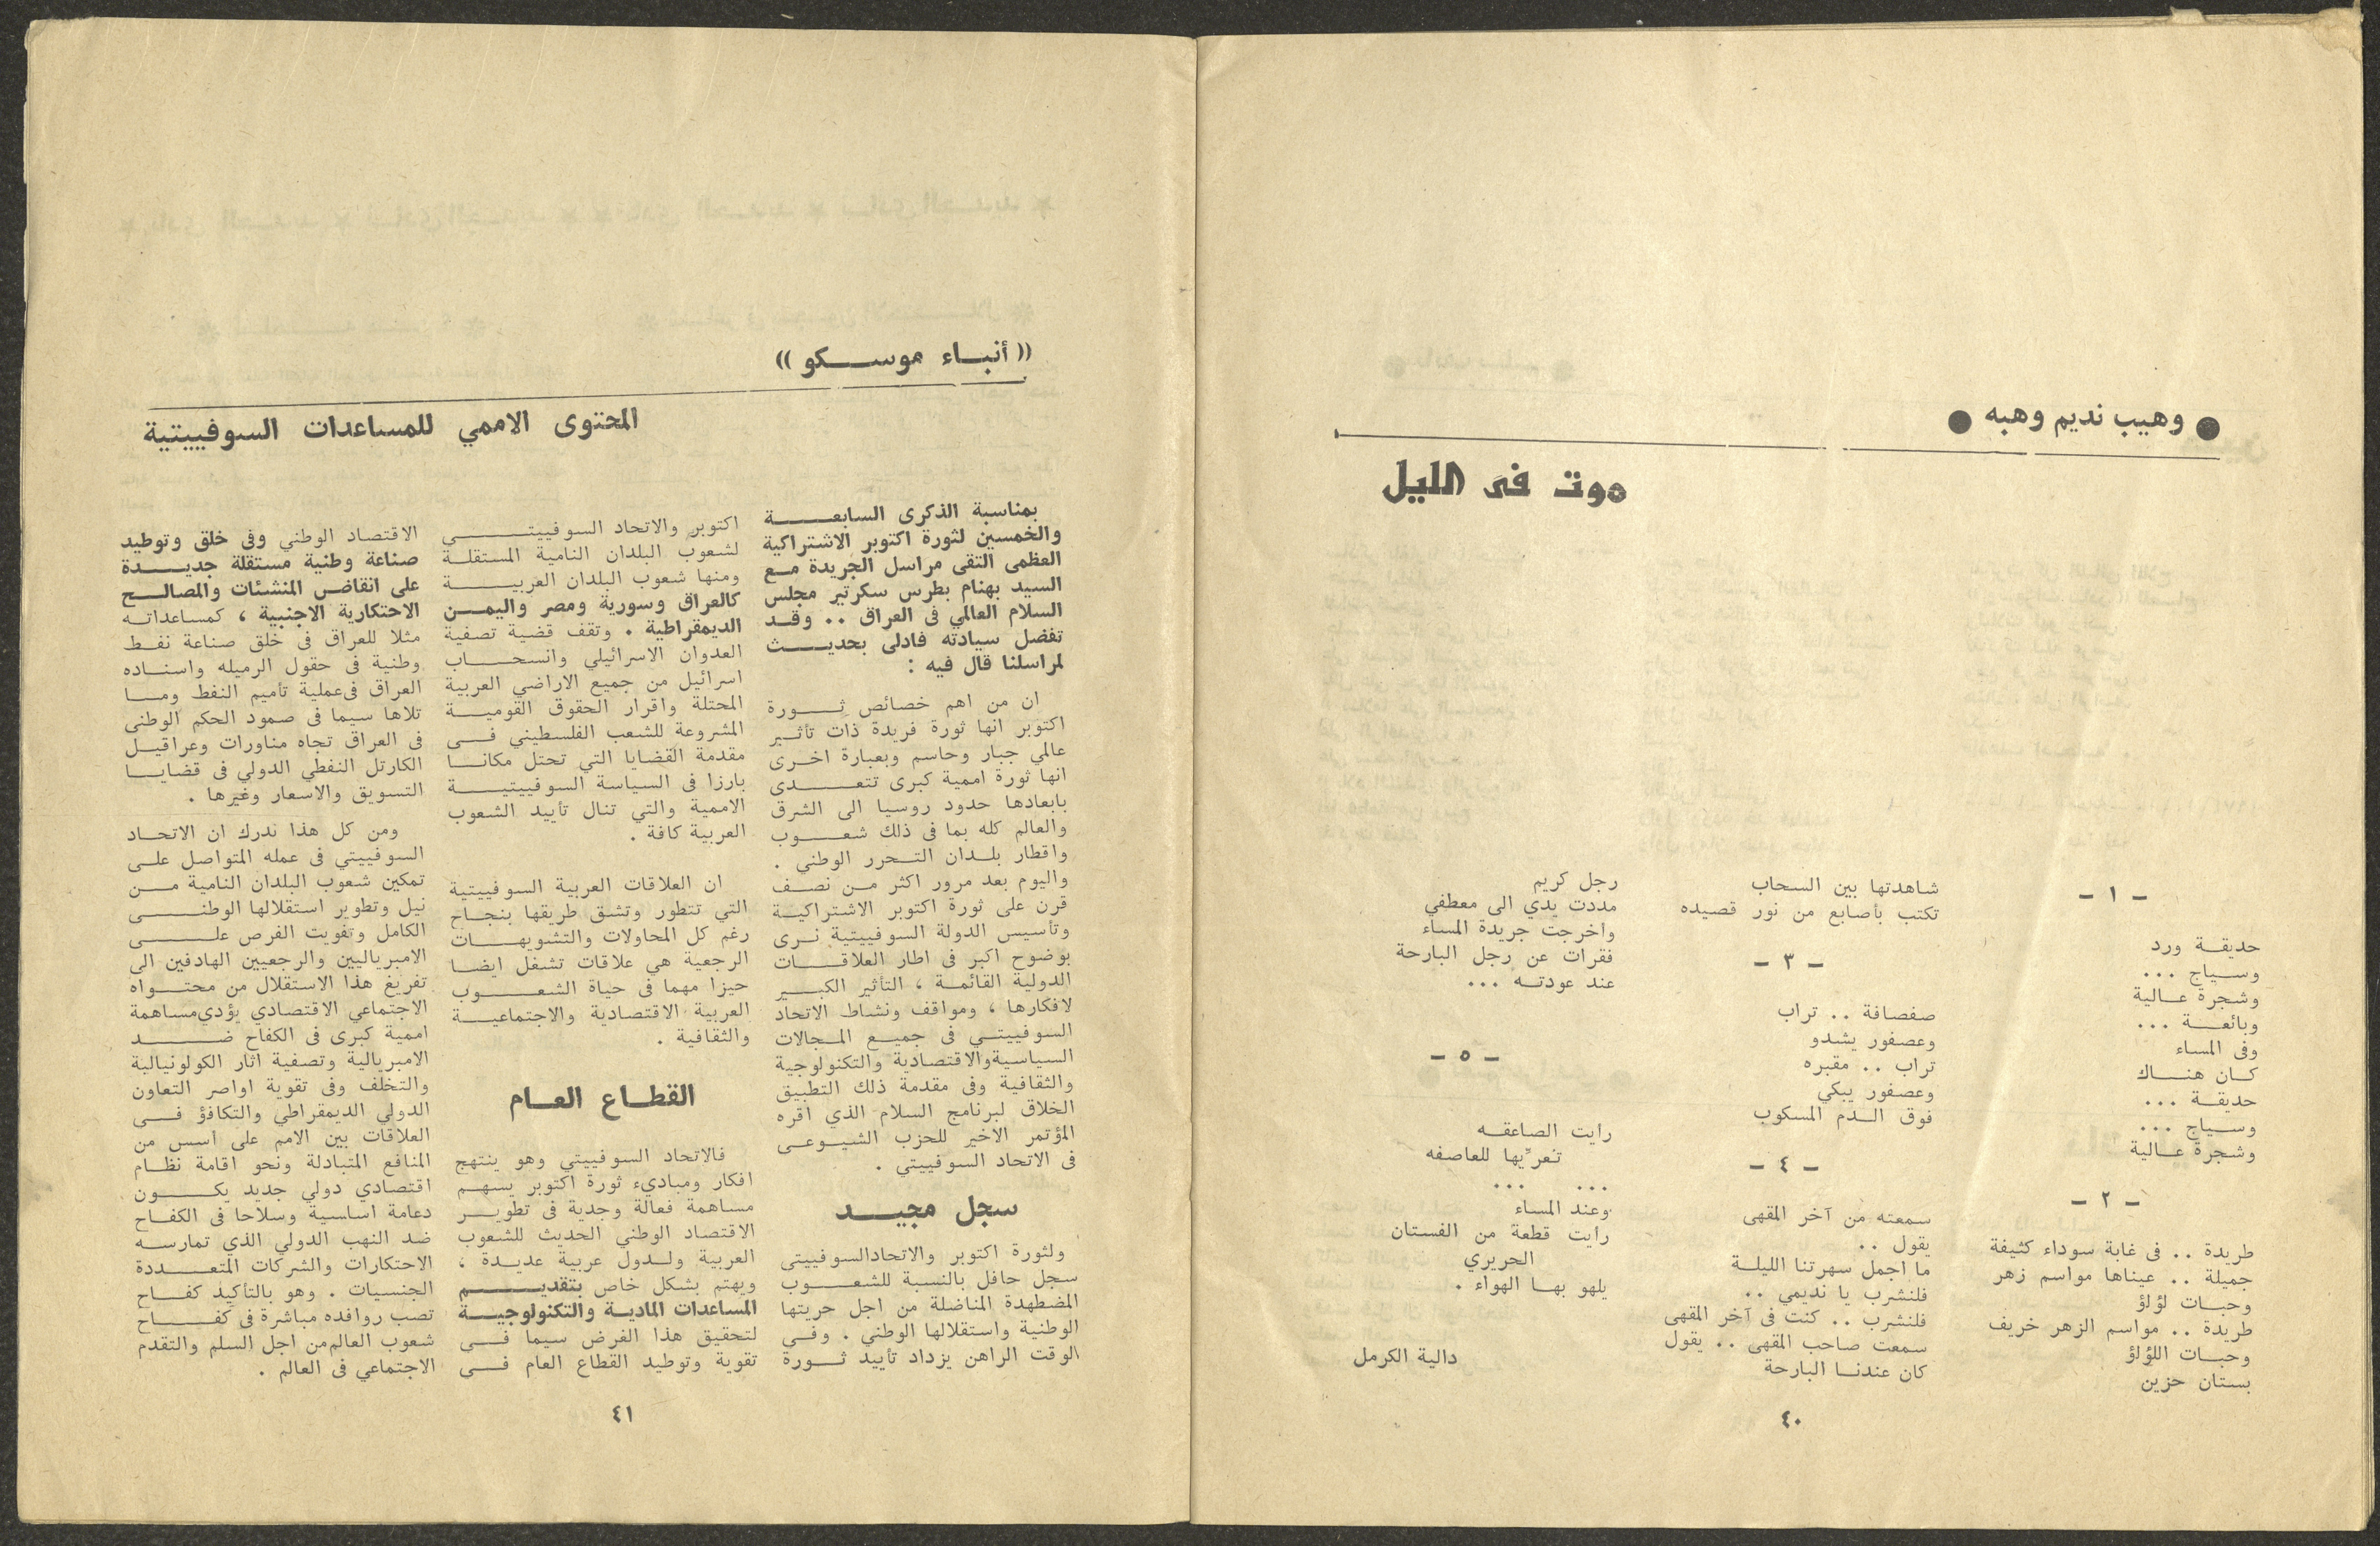 ● وهيب نديم وهبه ●
موت فى الليل
- ١ -
حديقة ورد
وسياج ...
وشجرة عالية
وبائعة ...
وفى المساء
كان هناك
حديقة ...
وسياج ...
وشجرة عالية
- ٢ -
طريدة .. فى غابة سوداء كثيفة
جميلة .. عيناها مواسم زهر
وحبات لؤلؤ
طريدة .. مواسم الزهر خريف
وحبات اللؤلؤ
بستان حزين
شاهدتها بين السحاب
تكتب بأصابع من نور قصيده
- ٣ -
صفصافة .. تراب
وعصفور يشدو
تراب .. مقبره
وعصفور يبكي
فوق الدم المسكوب
- ٤ -
سمعته من آخر المقهى
يقول ..
ما اجمل سهرتنا الليلة
فلنشرب يا نديمي ..
فلنشرب .. كنت فى آخر المقهى
سمعت صاحب المقهى .. يقول
كان عندنا البارحة
رجل كريم
مددت يدي الى معطفي
واخرجت جريدة المساء
فقرات عن رجل البارحة
عند عودته ...
- ٥ -
رايت الصاعقه
تعرّيها للعاصفه
... ...
وعند المساء
رايت قطعة من الفستان
الحريري
يلهو بها الهواء .
دالية الكرمل
٤٠
(( أنباء موسكو ))
المحتوى الاممي للمساعدات السوفييتية
بمناسبة الذكرى السابعة
والخمسين لثورة اكتوبر الاشتراكية
العظمى التقى مراسل الجريدة مع
السيد بهنام بطرس سكرتير مجلس
السلام العالمي فى العراق .. وقد
تفضل سيادته فادلى بحديث
لمراسلنا قال فيه :
ان من اهم خصائص ثورة
اكتوبر انها ثورة فريدة ذات تأثير
عالمي جبار وحاسم وبعبارة اخرى
انها ثورة اممية كبرى تتعدى
بابعادها حدود روسيا الى الشرق
والعالم كله بما فى ذلك شعوب
واقطار بلدان التحرر الوطني .
واليوم بعد مرور اكثر من نصف
قرن على ثورة اكتوبر الاشتراكية
وتأسيس الدولة السوفييتية نرى
بوضوح اكبر فى اطار العلاقات
الدولية القائمة ، التأثير الكبير
لافكارها ، ومواقف ونشاط الاتحاد
السوفييتي فى جميع المجالات
السياسيةوالاقتصادية والتكنولوجية
والثقافية وفى مقدمة ذلك التطبيق
الخلاق لبرنامج السلام الذي اقره
المؤتمر الاخير للحزب الشيوعى
فى الاتحاد السوفييتي .
سجل مجيد
ولثورة اكتوبر والاتحادالسوفييتى
سجل حافل بالنسبة للشعوب
المضطهدة المناضلة من اجل حريتها
الوطنية واستقلالها الوطني . وفي
الوقت الراهن يزداد تأييد ثورة
اكتوبر والاتحاد السوفييتي
لشعوب البلدان النامية المستقلة
ومنها شعوب البلدان العربية
كالعراق وسورية ومصر واليمن
الديمقراطية . وتقف قضية تصفية
العدوان الاسرائيلي وانسحاب
اسرائيل من جميع الاراضي العربية
المحتلة واقرار الحقوق القومية
المشروعة للشعب الفلسطيني فى
مقدمة القضايا التي تحتل مكانا
بارزا فى السياسة السوفييتية
الاممية والتي تنال تأييد الشعوب
العربية كافة .
ان العلاقات العربية السوفييتية
التي تتطور وتشق طريقها بنجاح
رغم كل المحاولات والتشويهات
الرجعية هي علاقات تشغل ايضا
حيزا مهما فى حياة الشعوب
العربية الاقتصادية والاجتماعية
والثقافية .
القطاع العام
فالاتحاد السوفييتي وهو ينتهج
افكار ومبادىء ثورة اكتوبر يسهم
مساهمة فعالة وجدية فى تطوير
الاقتصاد الوطني الحديث للشعوب
العربية ولدول عربية عديدة ،
ويهتم بشكل خاص بتقديم
المساعدات المادية والتكنولوجية
لتحقيق هذا الغرض سيما فى
تقوية وتوطيد القطاع العام فى
الاقتصاد الوطني وفى خلق وتوطيد
صناعة وطنية مستقلة جديدة
على انقاض المنشئات والمصالح
الاحتكارية الاجنبية ، كمساعداته
مثلا للعراق فى خلق صناعة نفط
وطنية فى حقول الرميله واسناده
العراق فىعملية تأميم النفط وما
تلاها سيما فى صمود الحكم الوطنى
فى العراق تجاه مناورات وعراقيل
الكارتل النفطي الدولي فى قضايا
التسويق والاسعار وغيرها .
ومن كل هذا ندرك ان الاتحاد
السوفييتي فى عمله المتواصل على
تمكين شعوب البلدان النامية من
نيل وتطوير استقلالها الوطنى
الكامل وتفويت الفرص على
الامبرياليين والرجعيين الهادفين الى
تفريغ هذا الاستقلال من محتواه
الاجتماعي الاقتصادي يؤدي مساهمة
اممية كبرى فى الكفاح ضد
الامبريالية وتصفية اثار الكولونيالية
والتخلف وفى تقوية اواصر التعاون
الدولي الديمقراطي والتكافؤ فى
العلاقات بين الامم على اسس من
المنافع المتبادلة ونحو اقامة نظام
اقتصادي دولي جديد يكون
دعامة اساسية وسلاحا فى الكفاح
ضد النهب الدولي الذي تمارسه
الاحتكارات والشركات المتعددة
الجنسيات . وهو بالتأكيد كفاح
تصب روافده مباشرة فى كفاح
شعوب العالم من اجل السلم والتقدم
الاجتماعي فى العالم .
٤١